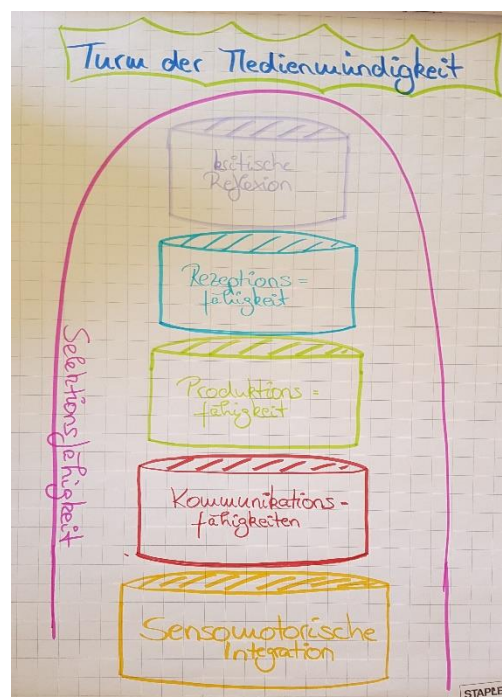 Turm der Medienmündigkeit
kritische
Reflexion
Rezeptions=
fähigkeit
Produktions=
fähigkeit
Kommunikations-
fähigkeiten
Sensomotorische
Integration
Selektionsfähigkeit
STAPLES